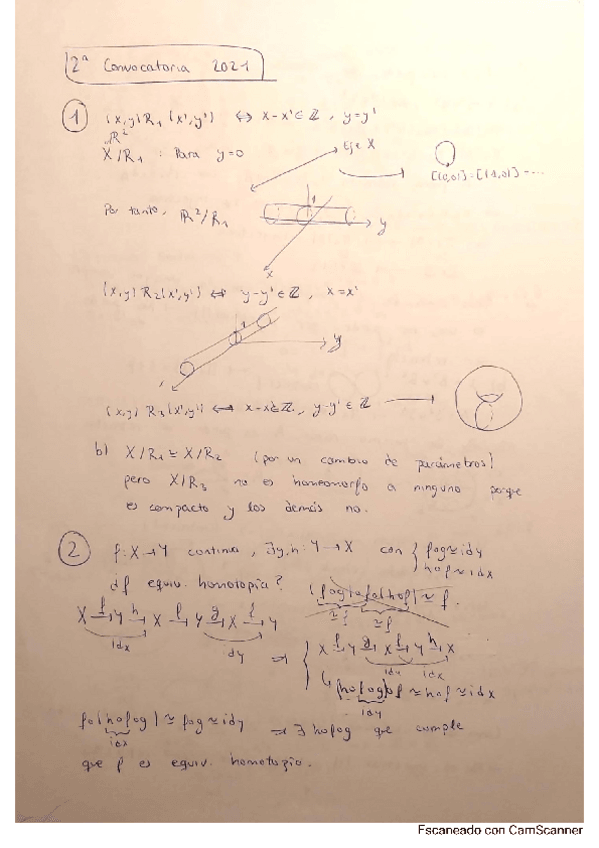 2ª Convocatoria 2021
1 (x,y) R₁ (x',y') ↔ x-x' ∈ ℤ, y=y'
ℝ²
X/R₁ : Para y=0
Eje X
[(0,0)] = [(1,0)] = ...
Por tanto, ℝ²/R₁
1
y
x
(x,y) R₂ (x',y') ↔ y-y' ∈ ℤ, x=x'
1
y
x
(x,y) R₃ (x',y') ↔ x-x' ∈ ℤ, y-y' ∈ ℤ →
b) X/R₁ ≅ X/R₂ (por un cambio de parámetros)
pero X/R₃ no es homeomorfo a ninguno porque
es compacto y los demás no.
2 f: X → Y continua, ∃ g,h: Y → X con { fog ≃ idy
hof ≃ idx
¿f equiv. homotopía?
X f→ Y h→ X f→ Y g→ X f→ Y
idx idy
⇒ { X f→ Y g→ X f→ Y h→ X
idx
(hofog)of ≃ hof ≃ idx
idy
fo(hofog) ≃ fog ≃ idy ⇒ ∃ hofog que cumple
idx
que f es equiv. homotopía.
Escaneado con CamScanner